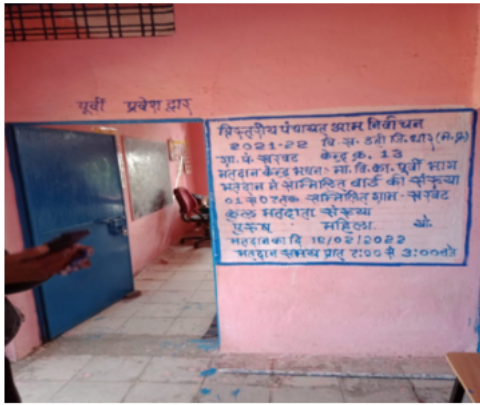 पूर्वी प्रवेश द्वार
त्रिस्तरीय पंचायत आम निर्वाचन
2021-22 वि.ख. डही जि.धार (म.प्र)
ग्रा.पं. खरबट केन्द्र क्र. 13
मतदान केन्द्र भवन: मा.वि.का. पूर्वी भाग
मतदान में सम्मिलित वार्ड की संख्या
01 से 07 तक सम्मिलित ग्राम - खरबट
कुल मतदाता संख्या
पुरुष महिला यो.
मतदान का दि 16/02/2022
मतदान समय प्रातः 7:00 से 3:00 बजे